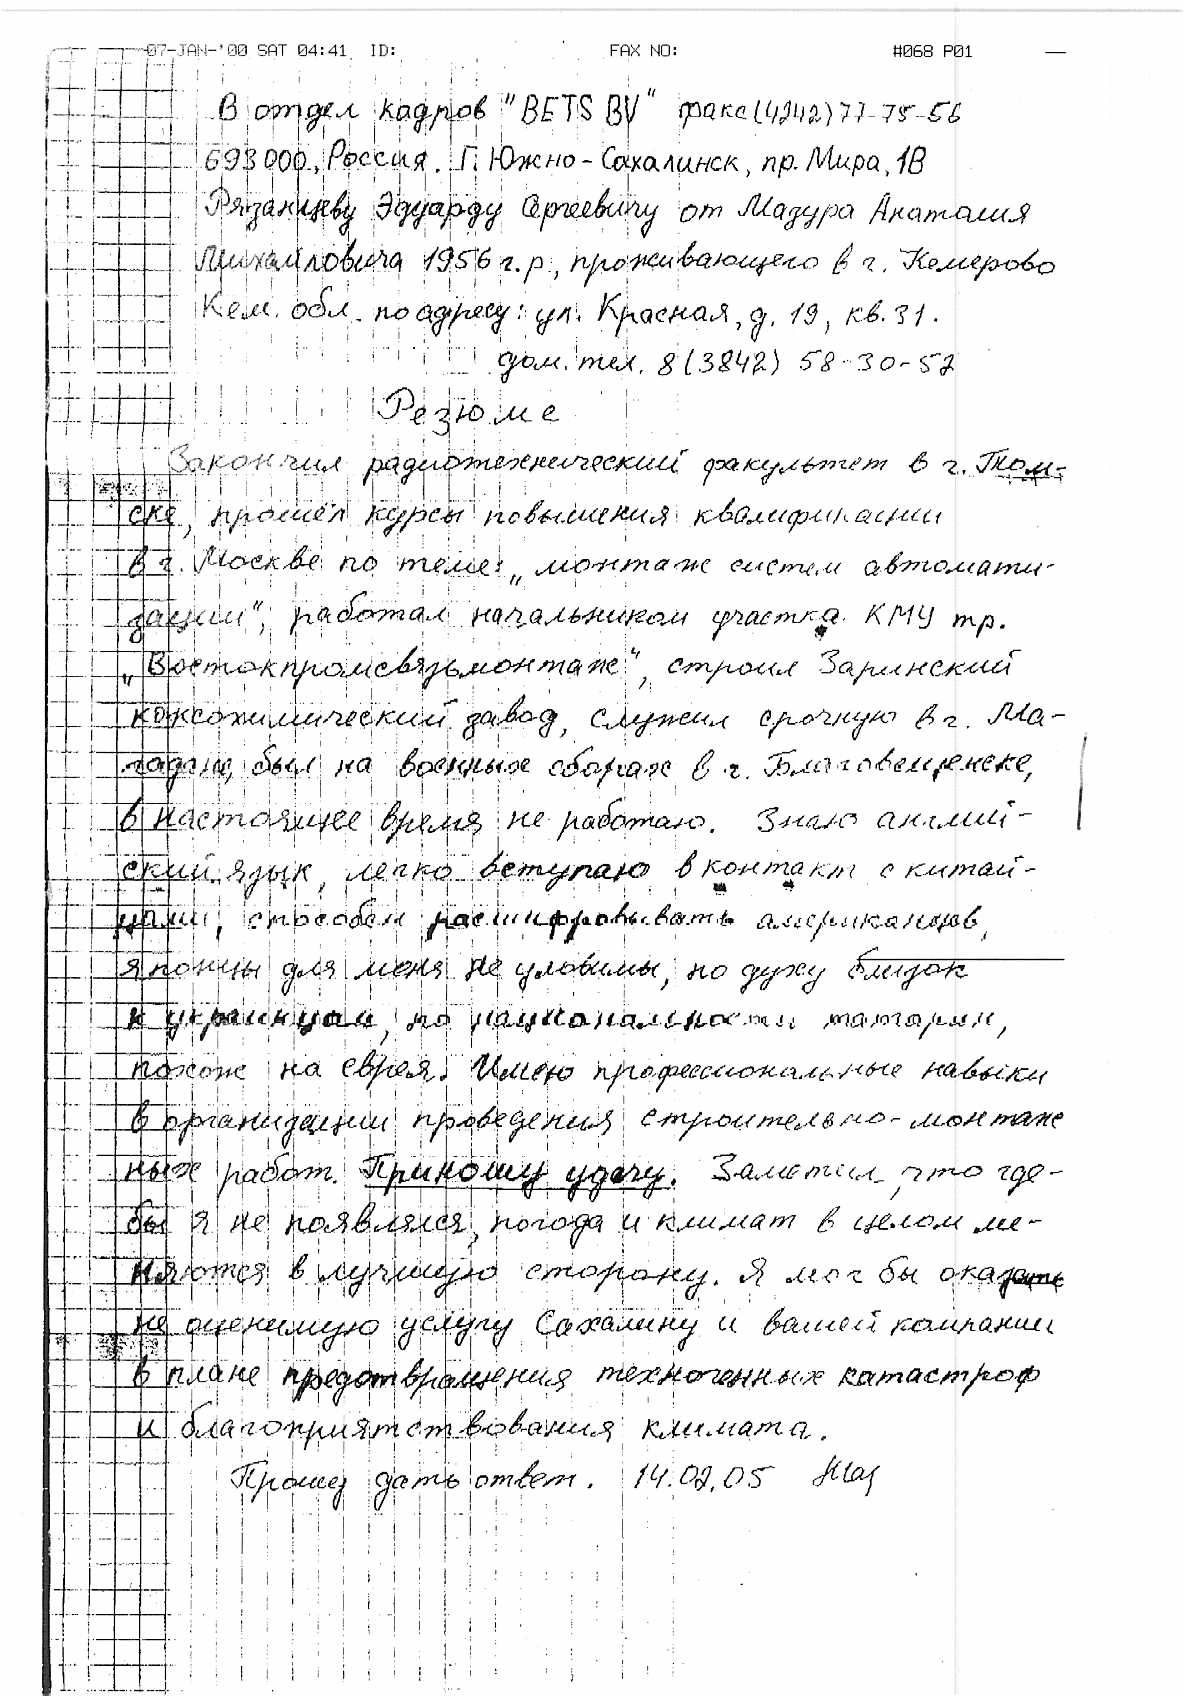 07-JAN-'00 SAT 04:41 ID: FAX NO: #068 P01
В отдел кадров "BETS BV" факс (4242) 77-75-56
693000, Россия. Г. Южно-Сахалинск, пр. Мира, 1В
Рязанцеву Эдуарду Сергеевичу от Мазура Анаталия
Михайловича 1956 г.р., проживающего в г. Кемерово
Кем. обл. по адресу: ул. Красная, д. 19, кв. 31.
дом. тел. 8 (3842) 58-30-52
Резюме
Закончил радиотехнический факультет в г. Том-
ске, прошёл курсы повышения квалификации
в г. Москве по теме: „монтаж систем автомати-
зации", работал начальником участка КМУ тр.
„Востокпромсвязьмонтаж", строил Заринский
коксохимический завод, служил срочную в г. Ма-
гадане, был на военных сборах в г. Благовещенске,
в настоящее время не работаю. Знаю англий-
ский язык, легко вступаю в контакт с китай-
цами, способен расшифровывать американцев,
японцы для меня не уловимы, по духу близок
к украинцам, по национальности татарин,
похож на еврея. Имею профессиональные навыки
в организации проведения строительно-монтаж
ных работ. Приношу удачу. Заметил, что где-
бы я не появлялся, погода и климат в целом ме-
няются в лучшую сторону. Я мог бы оказать
не оценимую услугу Сахалину и вашей компании
в плане предотвращения техногенных катастроф
и благоприятствования климата.
Прошу дать ответ. 14.02.05